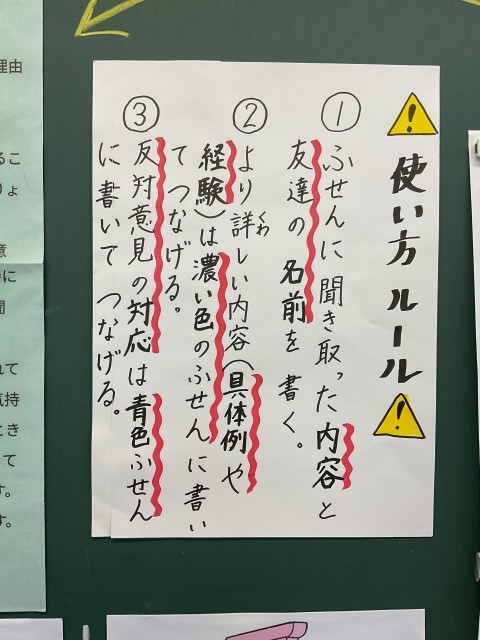 使い方ルール
① ふせんに聞き取った内容と
友達の名前を書く。
② より詳しい内容(具体例や
経験)は濃い色のふせんに書い
てつなげる。
③ 反対意見の対応は青色ふせん
に書いてつなげる。
くわ
理由